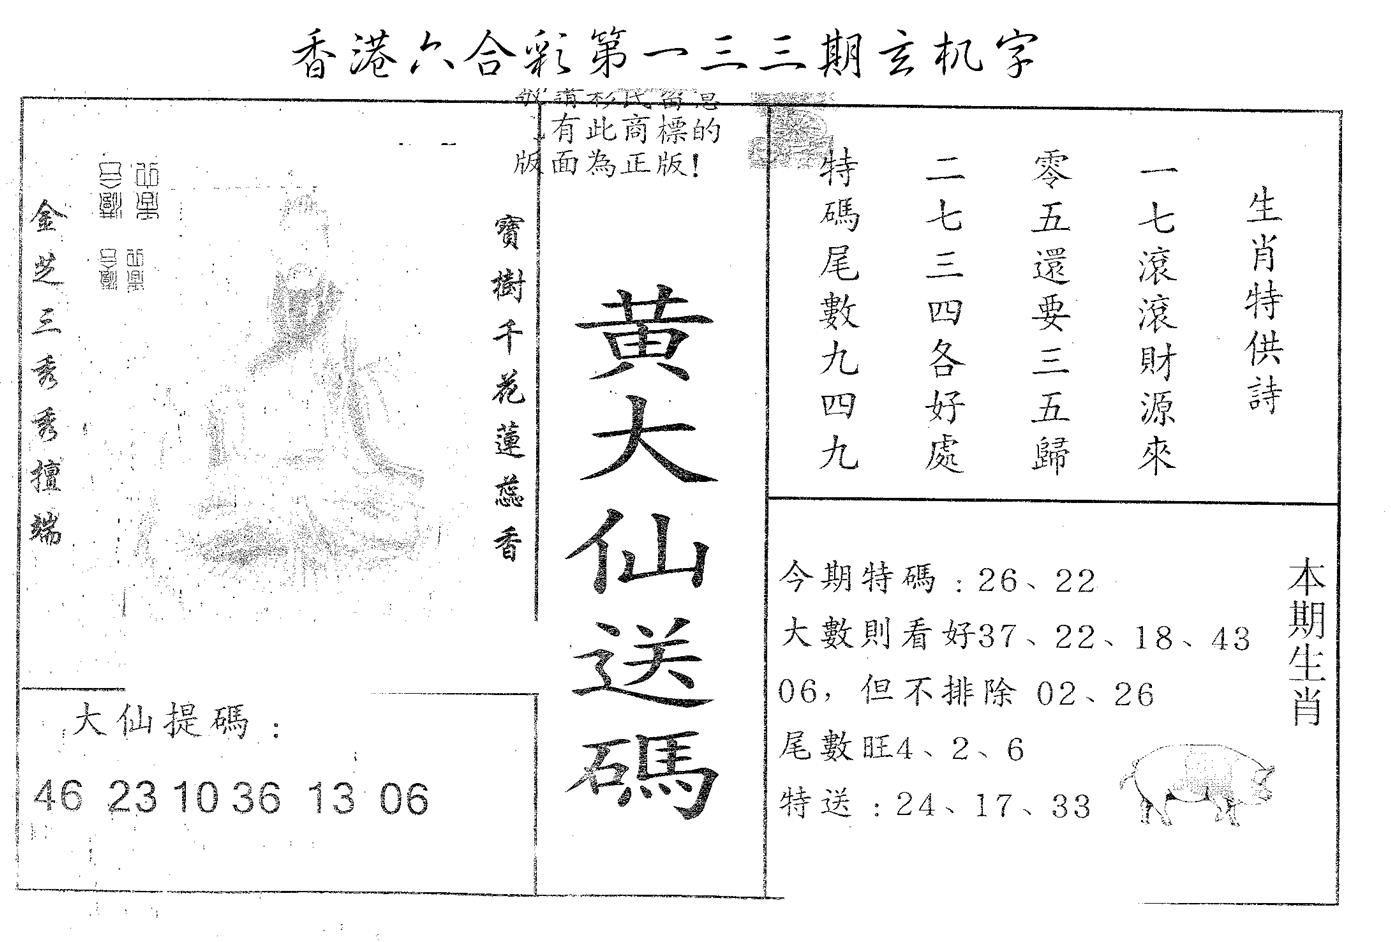 香港六合彩第一三三期玄机字
有此商標的
版面為正版！
金芝三秀秀擅端
寶樹千花蓮蕊香
大仙提碼：
46 23 10 36 13 06
黄大仙送碼
生肖特供詩
一七滾滾財源來
零五還要三五歸
二七三四各好處
特碼尾數九四九
本期生肖
今期特碼：26、22
大數則看好37、22、18、43
06，但不排除 02、26
尾數旺4、2、6
特送：24、17、33